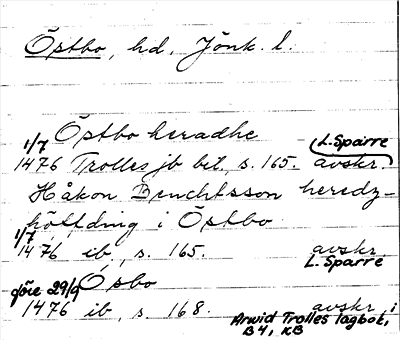 Östbo, hd. Jönk. l.
Östbo heradhe
1/7 1476 Trolles jb bet. s. 165. avskr. L. Sparre
Håkon Benchtsson heredz-
höffding i Östbo
1/7 1476 ib. s. 165. avskr. L. Sparre
Ósbo
före 29/9 1476 ib. s. 168. avskr. i
Arwid Trolles Jagbok,
B4, KB